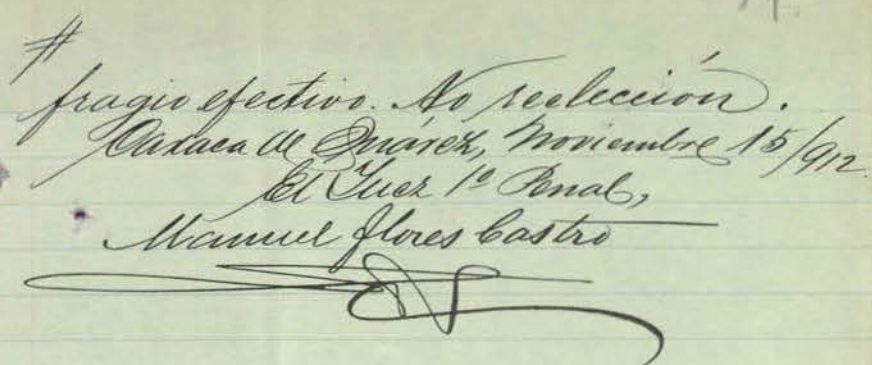 #
fragio efectivo. No reelección.
Oaxaca de Juárez, Noviembre 15/912.
El Juez 1º Penal,
Manuel Flores Castro